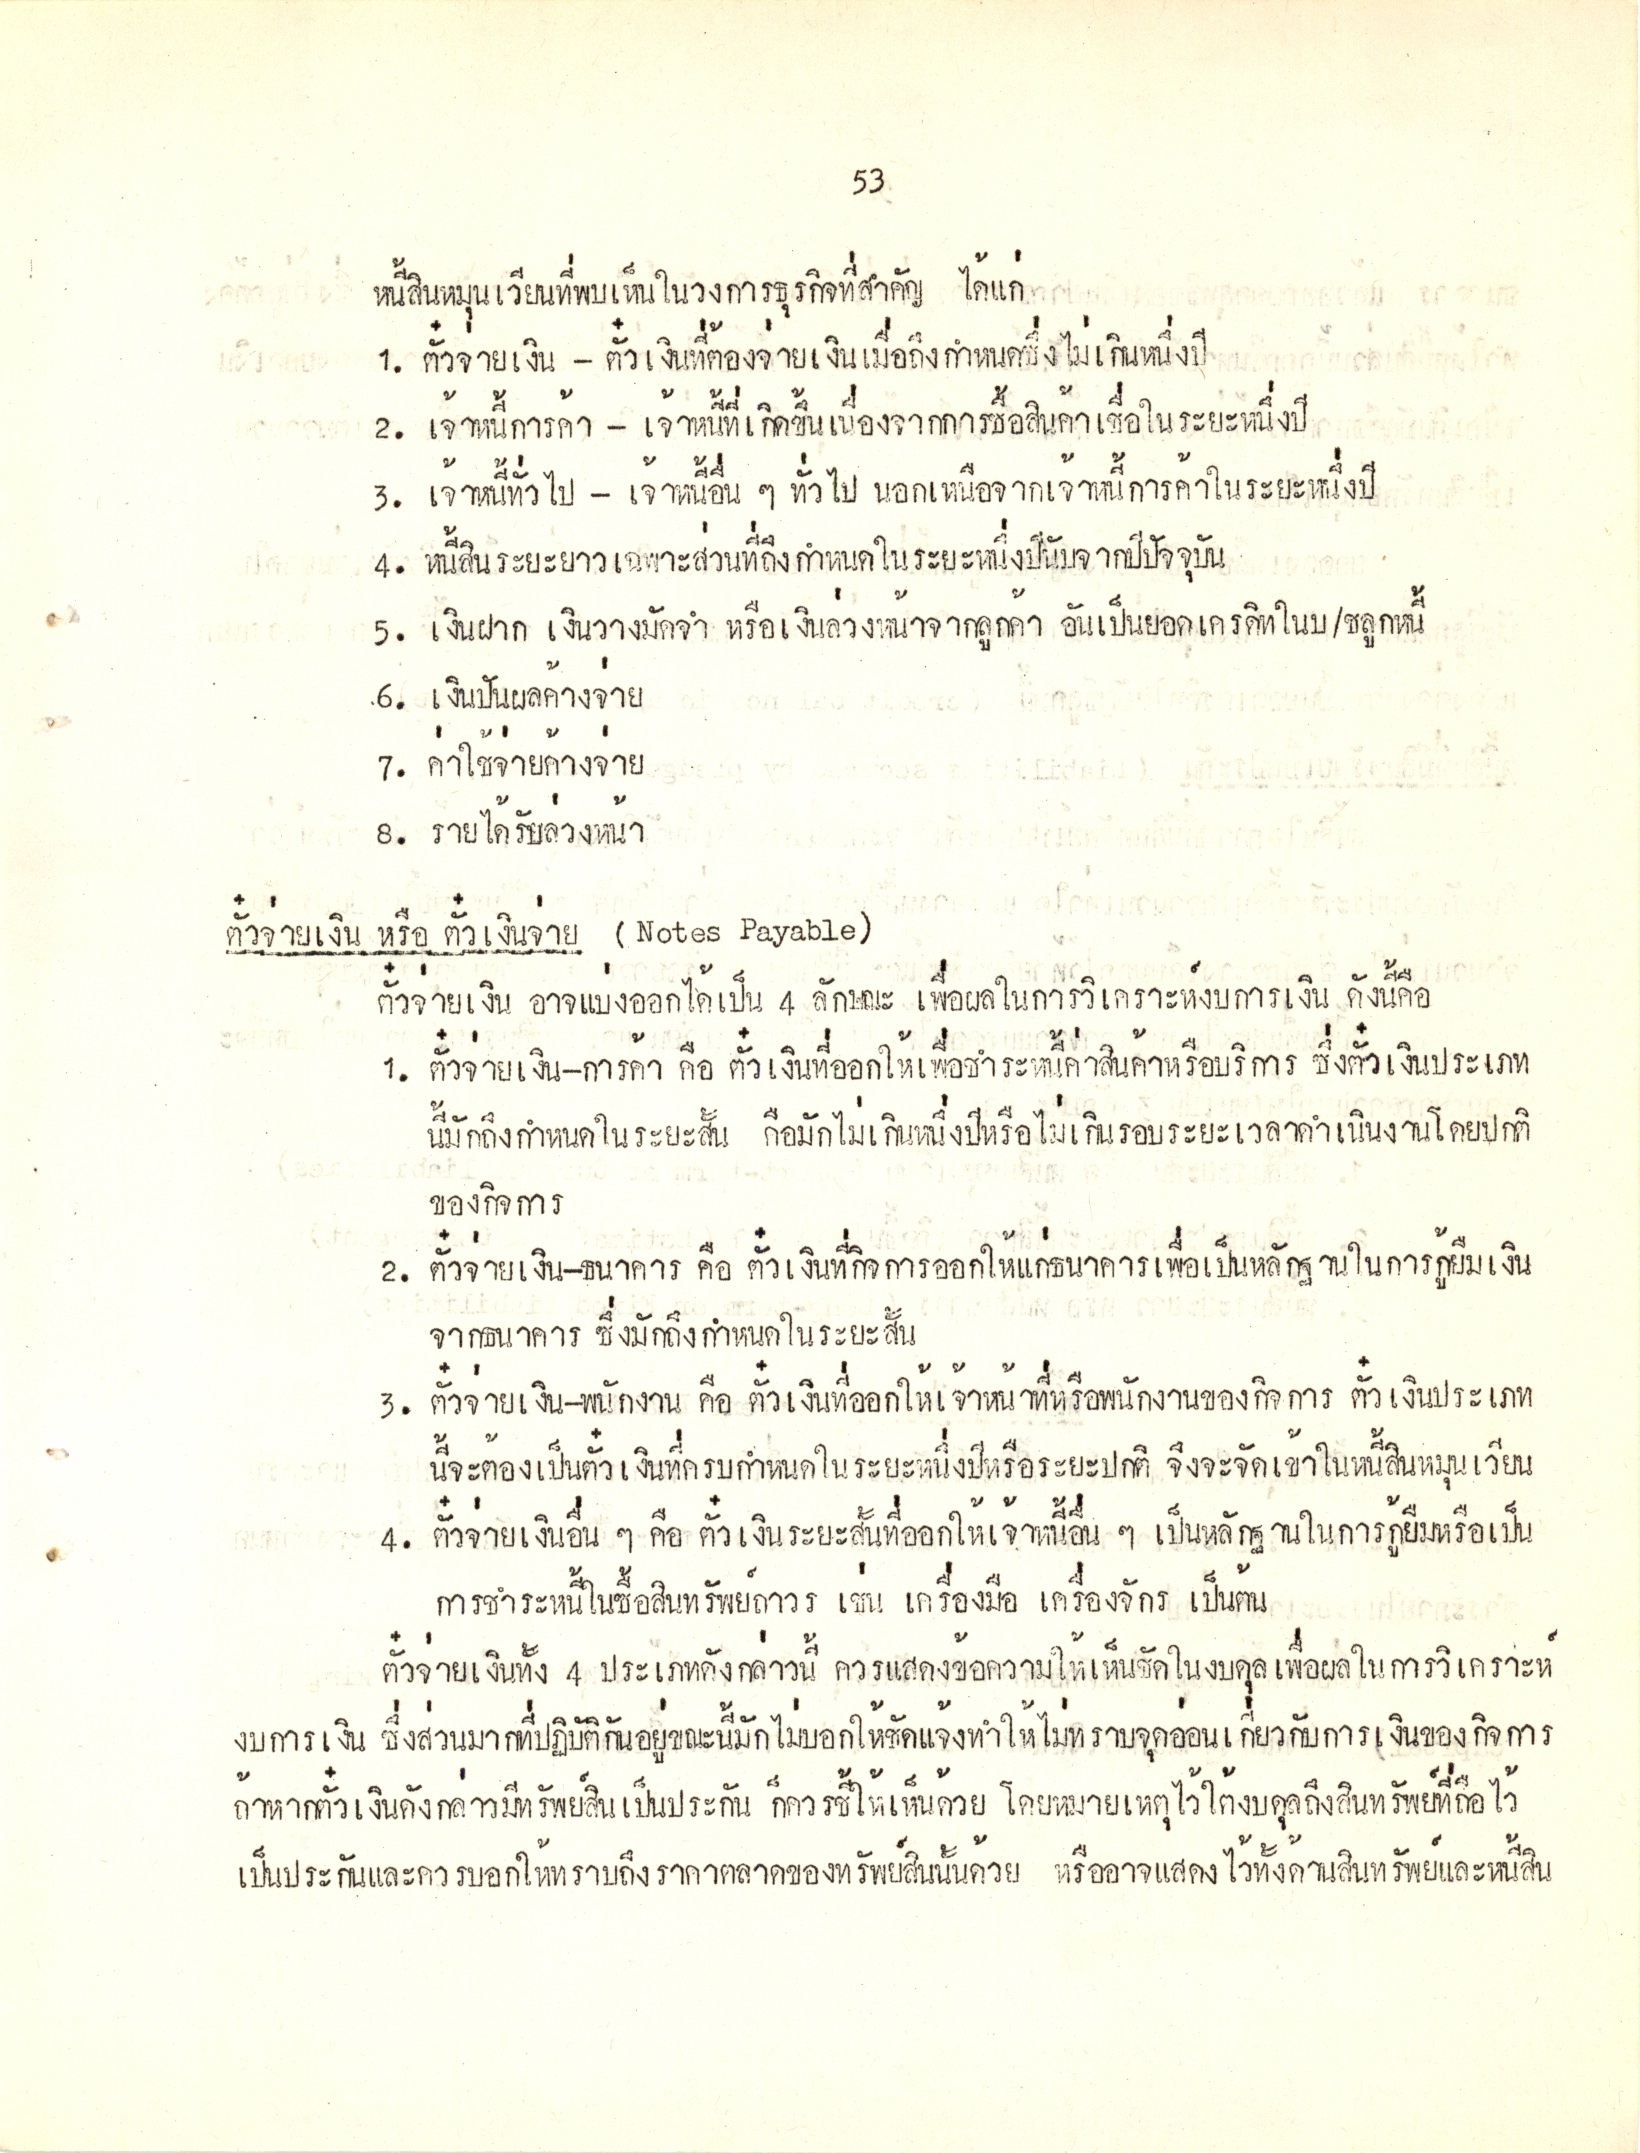 53
หนี้สินหมุนเวียนที่พบเห็นในวงการธุรกิจที่สำคัญ ได้แก่
1. ตั๋วจ่ายเงิน – ตั๋วเงินที่ต้องจ่ายเงินเมื่อถึงกำหนดซึ่งไม่เกินหนึ่งปี
2. เจ้าหนี้การค้า – เจ้าหนี้ที่เกิดขึ้นเนื่องจากการซื้อสินค้าเชื่อในระยะหนึ่งปี
3. เจ้าหนี้ทั่วไป – เจ้าหนี้อื่น ๆ ทั่วไป นอกเหนือจากเจ้าหนี้การค้าในระยะหนึ่งปี
4. หนี้สินระยะยาวเฉพาะส่วนที่ถึงกำหนดในระยะหนึ่งปีนับจากปีปัจจุบัน
5. เงินฝาก เงินวางมัดจำ หรือเงินล่วงหน้าจากลูกค้า อันเป็นยอดเครดิทในบ/ชลูกหนี้
6. เงินปันผลค้างจ่าย
7. ค่าใช้จ่ายค้างจ่าย
8. รายได้รับล่วงหน้า
ตั๋วจ่ายเงิน หรือ ตั๋วเงินจ่าย (Notes Payable)
ตั๋วจ่ายเงิน อาจแบ่งออกได้เป็น 4 ลักษณะ เพื่อผลในการวิเคราะห์งบการเงิน ดังนี้คือ
1. ตั๋วจ่ายเงิน–การค้า คือ ตั๋วเงินที่ออกให้เพื่อชำระหนี้ค่าสินค้าหรือบริการ ซึ่งตั๋วเงินประเภท
นี้มักถึงกำหนดในระยะสั้น คือมักไม่เกินหนึ่งปีหรือไม่เกินรอบระยะเวลาดำเนินงานโดยปกติ
ของกิจการ
2. ตั๋วจ่ายเงิน–ธนาคาร คือ ตั๋วเงินที่กิจการออกให้แก่ธนาคารเพื่อเป็นหลักฐานในการกู้ยืมเงิน
จากธนาคาร ซึ่งมักถึงกำหนดในระยะสั้น
3. ตั๋วจ่ายเงิน–พนักงาน คือ ตั๋วเงินที่ออกให้เจ้าหน้าที่หรือพนักงานของกิจการ ตั๋วเงินประเภท
นี้จะต้องเป็นตั๋วเงินที่ครบกำหนดในระยะหนึ่งปีหรือระยะปกติ จึงจะจัดเข้าในหนี้สินหมุนเวียน
4. ตั๋วจ่ายเงินอื่น ๆ คือ ตั๋วเงินระยะสั้นที่ออกให้เจ้าหนี้อื่น ๆ เป็นหลักฐานในการกู้ยืมหรือเป็น
การชำระหนี้ในซื้อสินทรัพย์ถาวร เช่น เครื่องมือ เครื่องจักร เป็นต้น
ตั๋วจ่ายเงินทั้ง 4 ประเภทดังกล่าวนี้ ควรแสดงข้อความให้เห็นชัดในงบดุลเพื่อผลในการวิเคราะห์
งบการเงิน ซึ่งส่วนมากที่ปฏิบัติกันอยู่ขณะนี้มักไม่บอกให้ชัดแจ้งทำให้ไม่ทราบจุดอ่อนเกี่ยวกับการเงินของกิจการ
ถ้าหากตั๋วเงินดังกล่าวมีทรัพย์สินเป็นประกัน ก็ควรชี้ให้เห็นด้วย โดยหมายเหตุไว้ใต้งบดุลถึงสินทรัพย์ที่ถือไว้
เป็นประกันและควรบอกให้ทราบถึงราคาตลาดของทรัพย์สินนั้นด้วย หรืออาจแสดงไว้ทั้งด้านสินทรัพย์และหนี้สิน